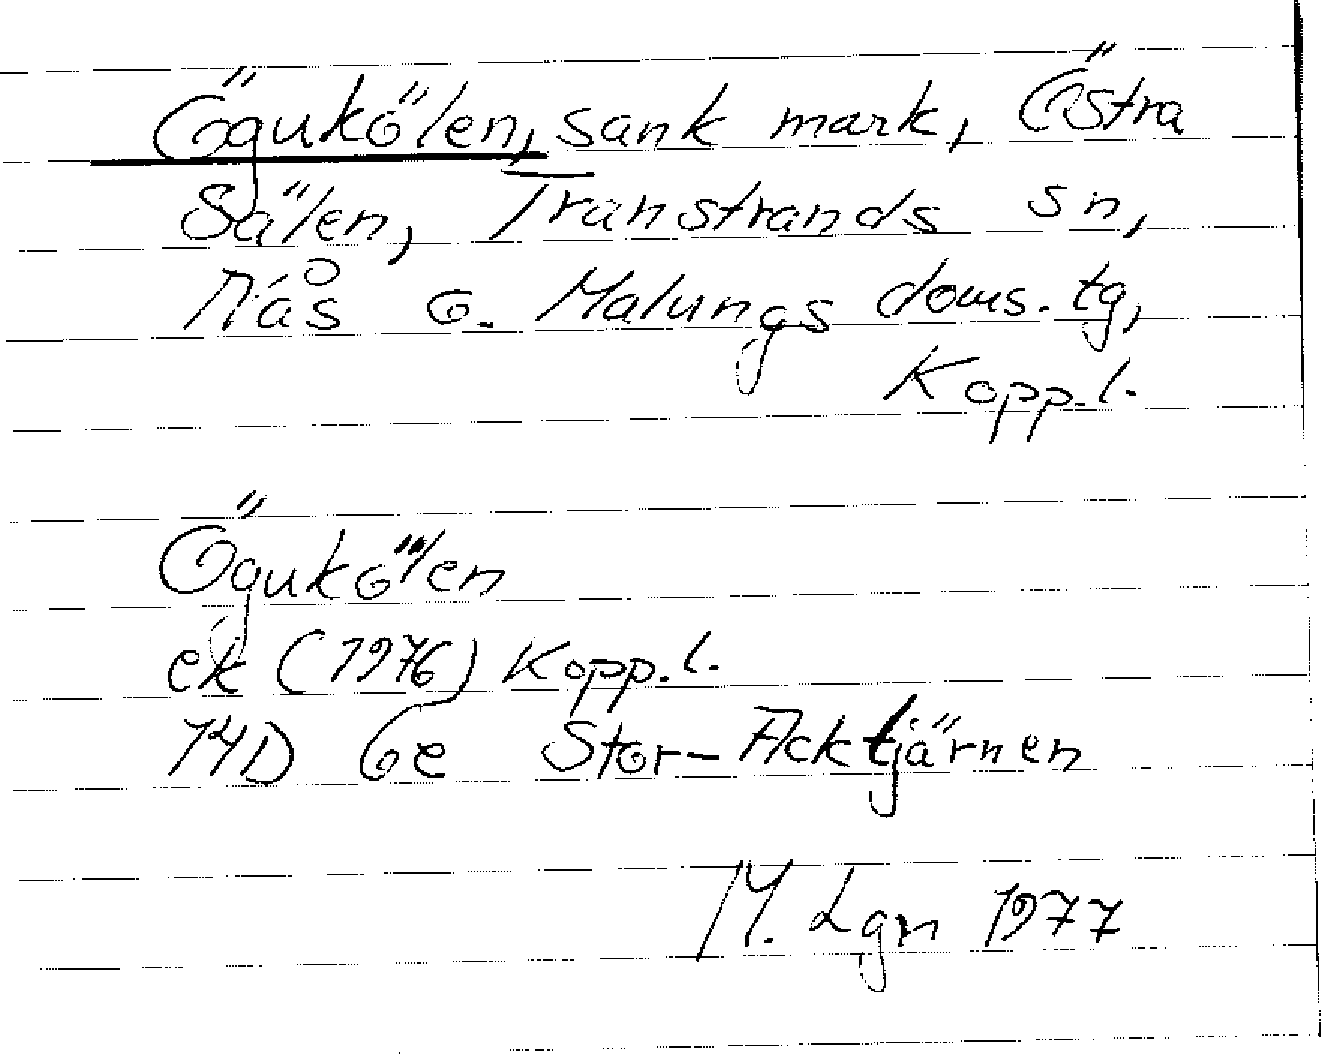 Ögukölen, sank mark, Östra
Sälen, Transtrands sn,
Nås o. Malungs doms. tg,
Kopp.l.
Ögukölen
ek (1976) Kopp.l.
14D 6e Stor-Acktjärnen
M. Lgn 1977